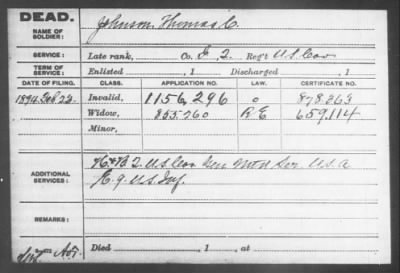 DEAD.
NAME OF SOLDIER: Johnson, Thomas C.
SERVICE: Late rank, Co. F, 2, Reg't U.S. Cav
TERM OF SERVICE: Enlisted , 1 Discharged , 1
DATE OF FILING. CLASS. APPLICATION NO. LAW. CERTIFICATE NO.
1894 Feb 23. Invalid, 1156,296 878.363
Widow, 855.260 659,114
Minor,
ADDITIONAL SERVICES: 2 U.S. Cav Gen Mt'd Ser U.S.A
E. 9 U.S. Inf.
REMARKS:
Died , 1 , at